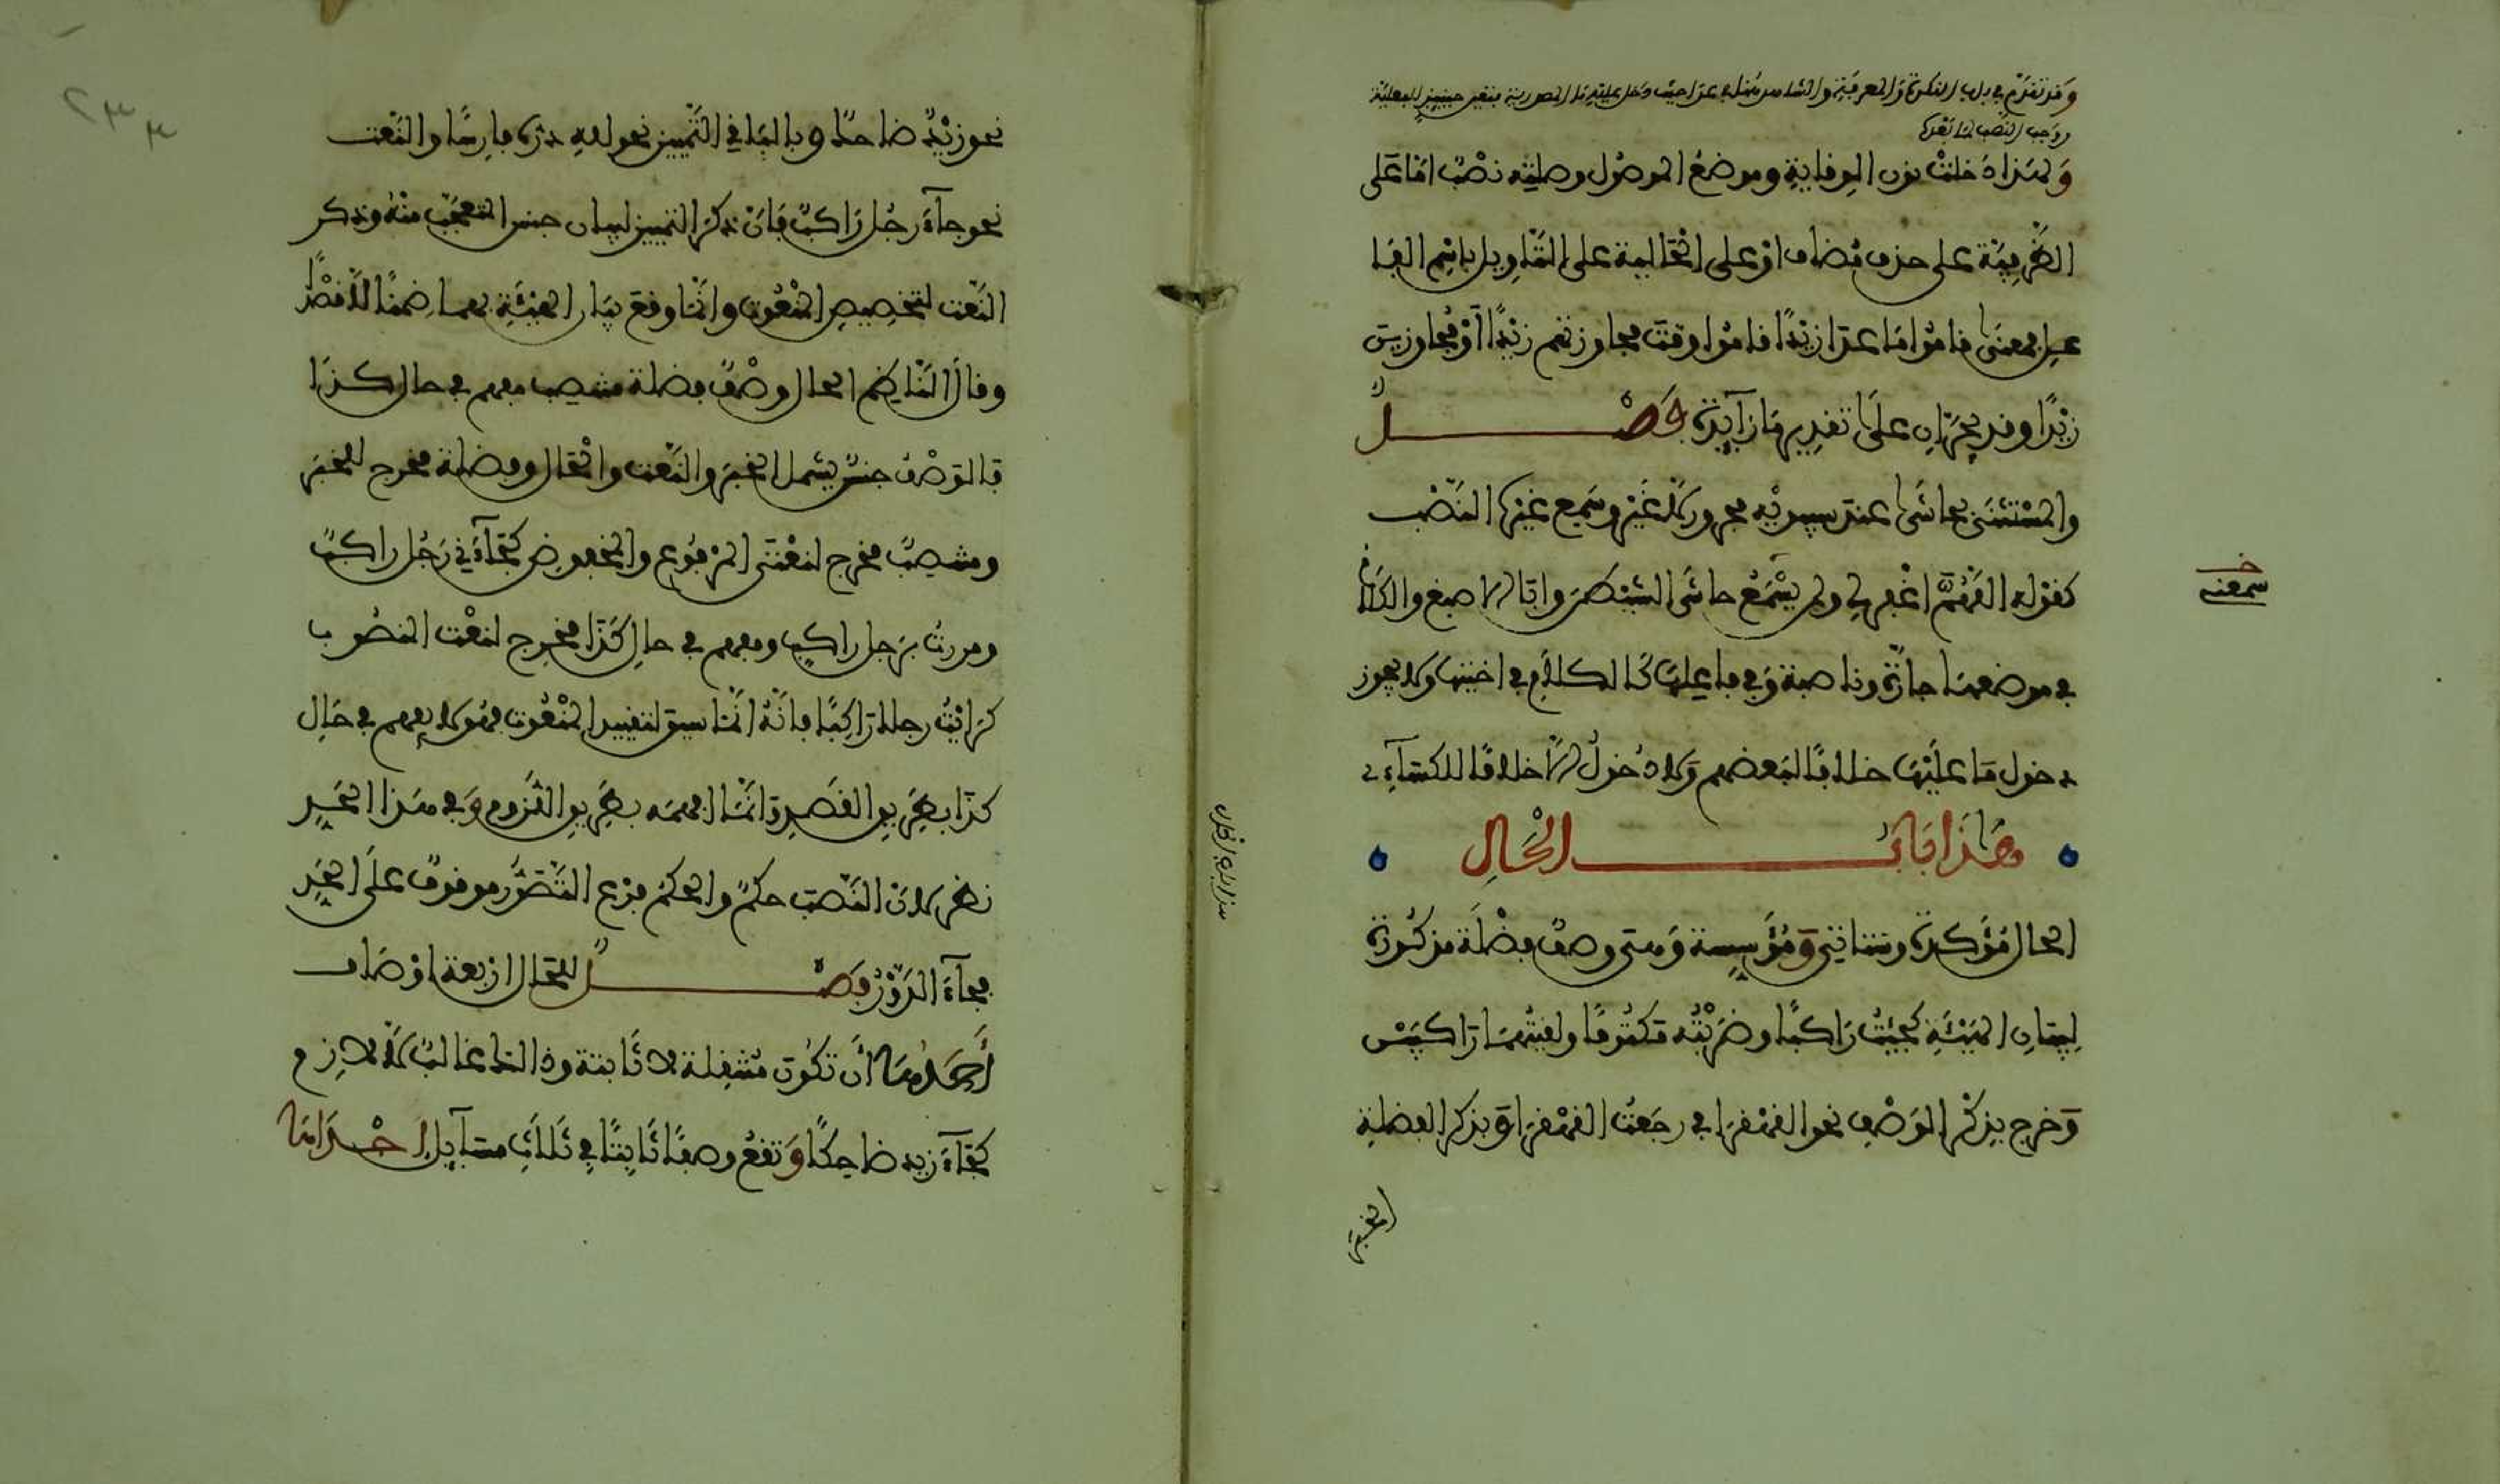 وقد تقدم في باب النكرة والمعرفة والشاهد هنا في عدا حيث دخل عليه ما المصدرية يتعين حينئذ للفعلية
ووجب النصب لما بعدها
ولهذا دخلت نون الوقاية وموضع الموصول وصلته نصب اما على
الظرفية على حذف مضاف او على الحالية على التاويل باسم الفا
عل فمعنى قاموا ما عدا زيدا قاموا وقت مجاوزتهم زيدا او مجاوزين
زيدا وقد يجران على تقدير ما زايدة فصل
والمستثنى بحاشى عند سيبويه مجرور لا غير وسمع غيره النصب
كقوله اللهم اغفر لي ولمن يسمع حاشى الشيطان وابا الاصبغ والكلام
في موضعها جارة وناصبة وفي فاعلها كالكلام في اختيها ولا يجوز
دخول ما عليها خلافا لبعضهم ولا دخول الا خلافا للكساءي
هذا باب الحال
الحال مؤكدة وستاتي ومؤسسة وهي وصف فضلة مذكورة
لبيان الهيئة كجئت راكبا وضربته مكتوفا ولقيتهما راكبين
وخرج بذكر الوصف نحو القهقرا في رجعت القهقرا وبذكر الفضلة
الخبر
سمعته
هذا باب الحال
نحو زيد ضاحك وبالباقي التمييز نحو لله دره فارسا والنعت
نحو جاء رجل راكب فان ذكر التمييز لبيان جنس المتعجب منه وذكر
النعت لتخصيص المنعوت وانما وقع بيان الهيئة بهما ضمنا لا قصدا
وقال الناظم الحال وصف فضلة منتصب مفهم في حال كذا
فالوصف جنس يشمل الخبر والنعت والحال وفضلة مخرج للخبر
ومنتصب مخرج لنعتي المرفوع والمخفوض كجاءني رجل راكب
ومررت برجل راكب ومفهم في حال كذا مخرج لنعت المنصوب
كرايت رجلا راكبا فانه انما سيق لتقييد المنعوت فهو لا يفهم في حال
كذا بطريق القصد وانما افهمه بطريق اللزوم وفي هذا الحد
نظر لان النصب حكم والحكم فرع التصور موقوف على الحد
فجاء الدور فصل للحال اربعة اوصاف
احدها ان تكون منتقلة لا ثابتة وذالك غالب لا لازم
كجاء زيد ضاحكا وتقع وصفا ثابتا في ثلاث مسايل احداها
٢٣٣